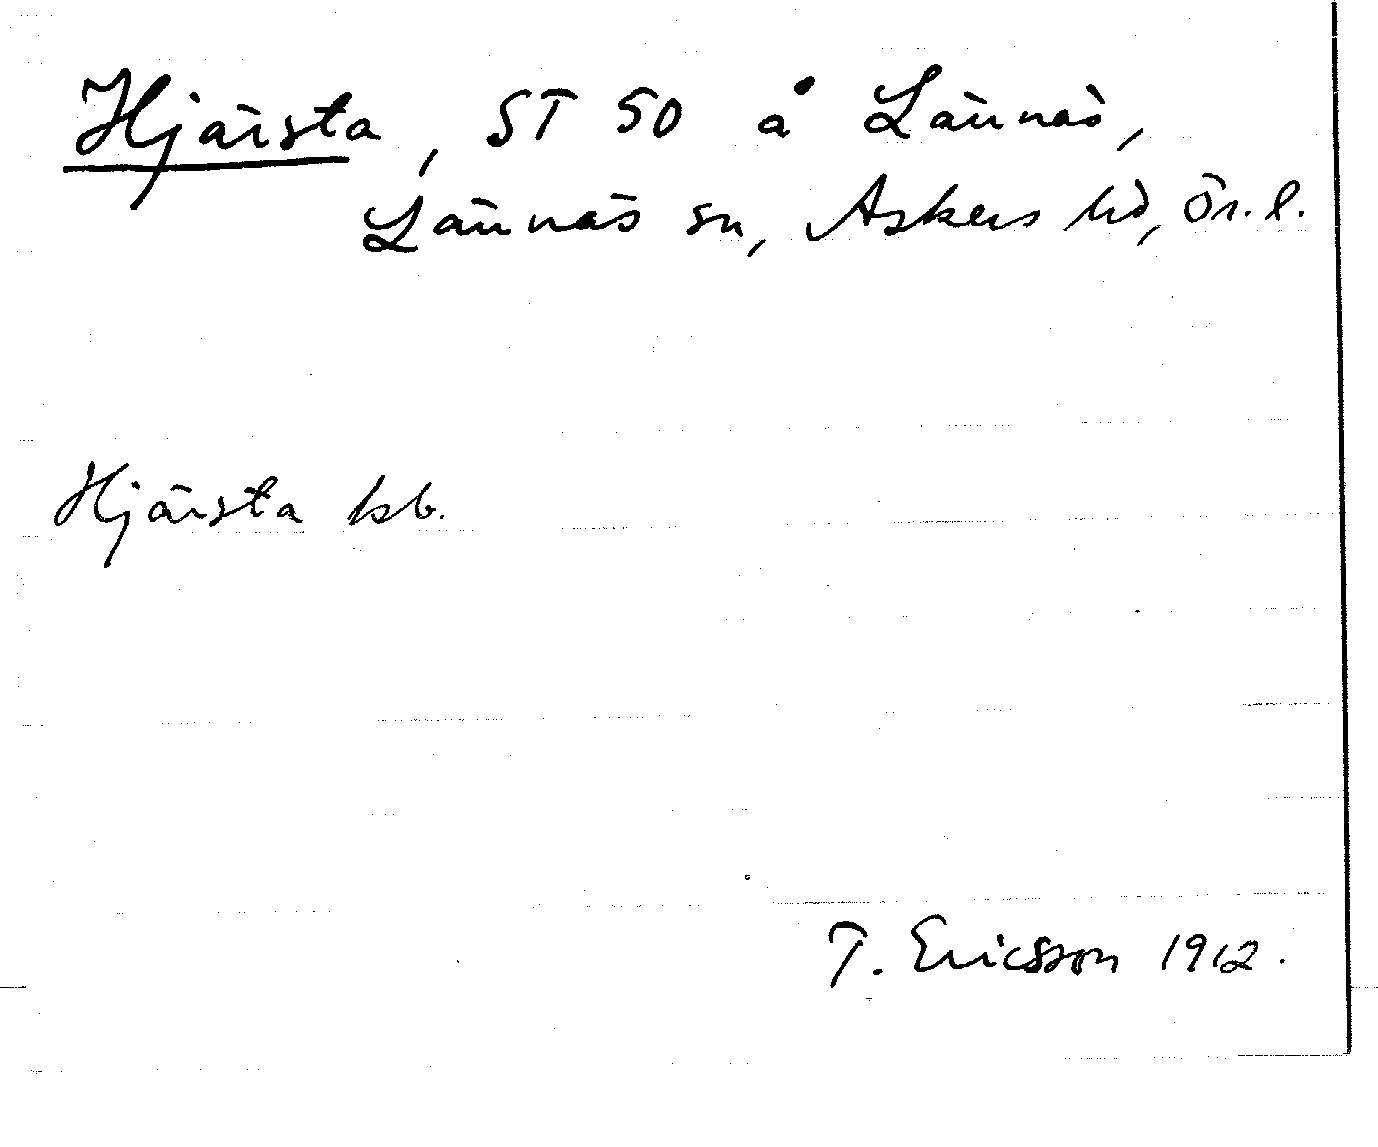 Hjärsta, ST 50 å Lännäs,
Lännäs sn, Askers hd, Ör. l.
Hjärsta kb.
T. Ericsson 1912.